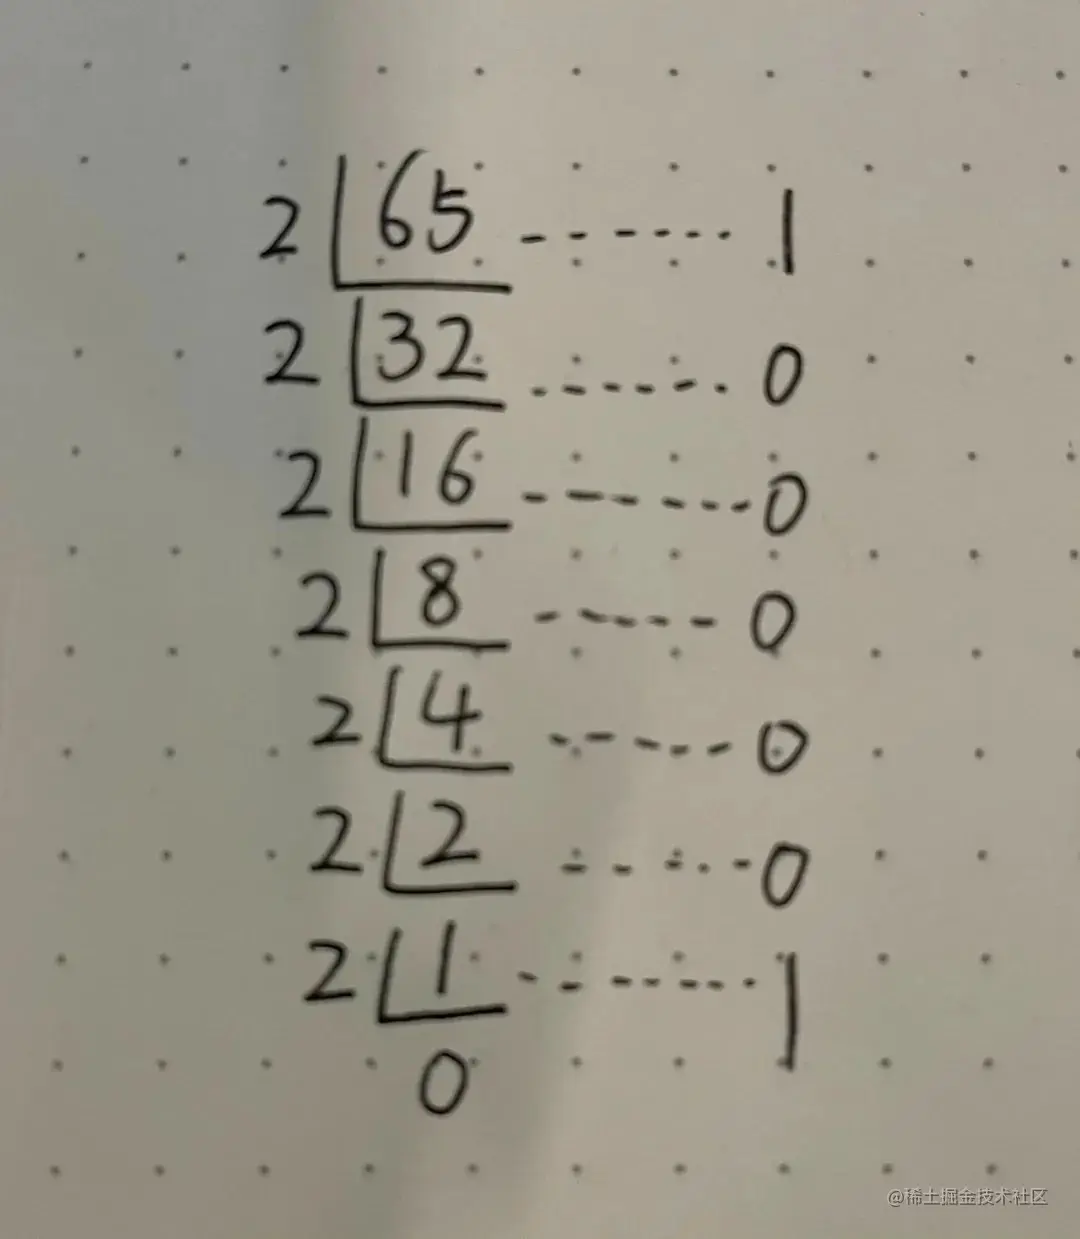 2 65 ------ 1
2 32 ------ 0
2 16 ------ 0
2 8 ----- 0
2 4 ----- 0
2 2 ----- 0
2 1 ------ 1
0
@稀土掘金技术社区